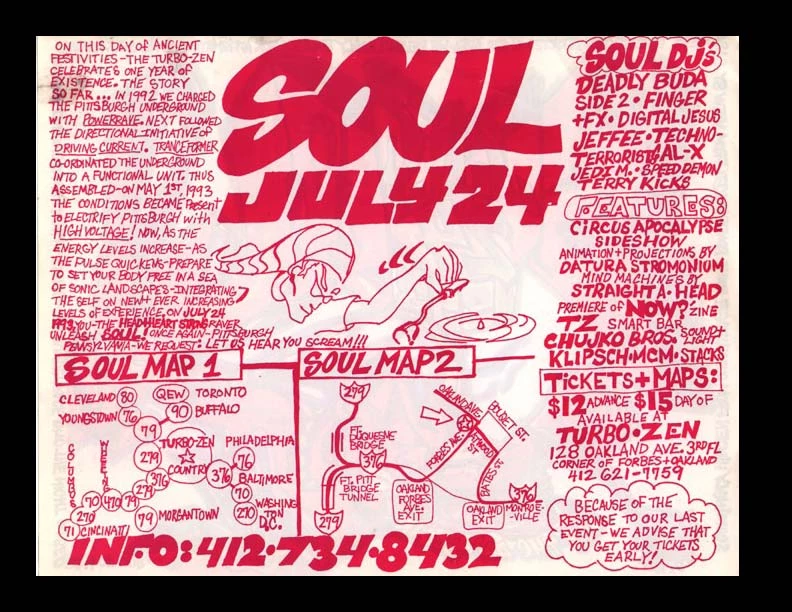 ON THIS DAY of ANCIENT
FESTIVITIES - THE TURBO-ZEN
CELEBRATES ONE YEAR OF
EXISTENCE. THE STORY
SO FAR... IN 1992 WE CHARGED
THE PITTSBURGH UNDERGROUND
WITH POWERRAVE. NEXT FOLLOWED
THE DIRECTIONAL INITIATIVE of
DRIVING CURRENT. TRANCEFORMER
CO-ORDINATED THE UNDERGROUND
INTO A FUNCTIONAL UNIT. THUS
ASSEMBLED - ON MAY 1ST, 1993
THE CONDITIONS BECAME Present
to ELECTRIFY PITTSBURGH with
HIGH VOLTAGE! NOW, AS THE
ENERGY LEVELS INCREASE - AS
THE PULSE QUICKENS - PREPARE
TO SET YOUR BODY FREE IN A SEA
OF SONIC LANDSCAPES - INTEGRATING
THE SELF ON NEW + EVER INCREASING
LEVELS OF EXPERIENCE, ON JULY 24
1993, YOU - THE HEADHEART STRONG RAVER
UNLEASH SOUL! ONCE AGAIN - PITTSBURGH
PENNSYLVANIA - WE REQUEST: LET US HEAR YOU SCREAM!!!
SOUL
JULY 24
SOUL DJ's
DEADLY BUDA
SIDE 2 • FINGER
+FX • DIGITAL JESUS
JEFFEE • TECHNO-
TERRORIST • GAL-X
JEDI M. • SPEED DEMON
TERRY KICKS
FEATURES:
CIRCUS APOCALYPSE
SIDESHOW
ANIMATION + PROJECTIONS BY
DATURA STROMONIUM
MIND MACHINES BY
STRAIGHT A-HEAD
PREMIERE of NOW? ZINE
TZ SMART BAR
CHUJKO BROS. SOUND + LIGHT
KLIPSCH • MCM • STACKS
TICKETS + MAPS:
$12 ADVANCE $15 DAY OF
AVAILABLE AT
TURBO • ZEN
128 OAKLAND AVE. 3RD FL
CORNER OF FORBES + OAKLAND
412 621-7759
BECAUSE OF THE
RESPONSE TO OUR LAST
EVENT - WE ADVISE THAT
YOU GET YOUR TICKETS
EARLY!
SOUL MAP 1
CLEVELAND 80
QEW TORONTO
YOUNGSTOWN 76
90 BUFFALO
79
COLUMBUS
WHEELING
279
TURBO-ZEN
COUNTRY
PHILADELPHIA
376 76
BALTIMORE
70 470 79 279 376
70
270
270
WASHINGTON
D.C.
71 CINCINNATI
79 MORGANTOWN
SOUL MAP 2
279
OAKLAND AVE.
BOUQUET ST.
FT. DUQUESNE
BRIDGE
FORBES AVE.
ATWOOD ST.
376
FT. PITT
BRIDGE
TUNNEL
BATES ST.
279
OAKLAND
FORBES
AVE.
EXIT
OAKLAND
EXIT
376
MONROE-
VILLE
INFO: 412•734•8432